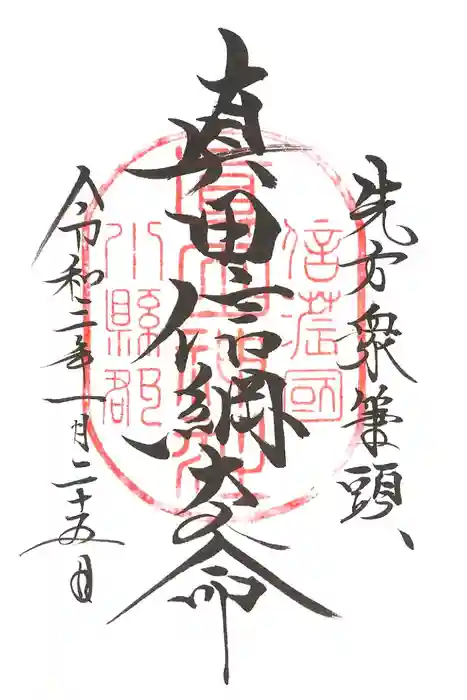 先方衆筆頭、
真田信綱大命
令和二年一月二十五日
信濃國
小縣郡